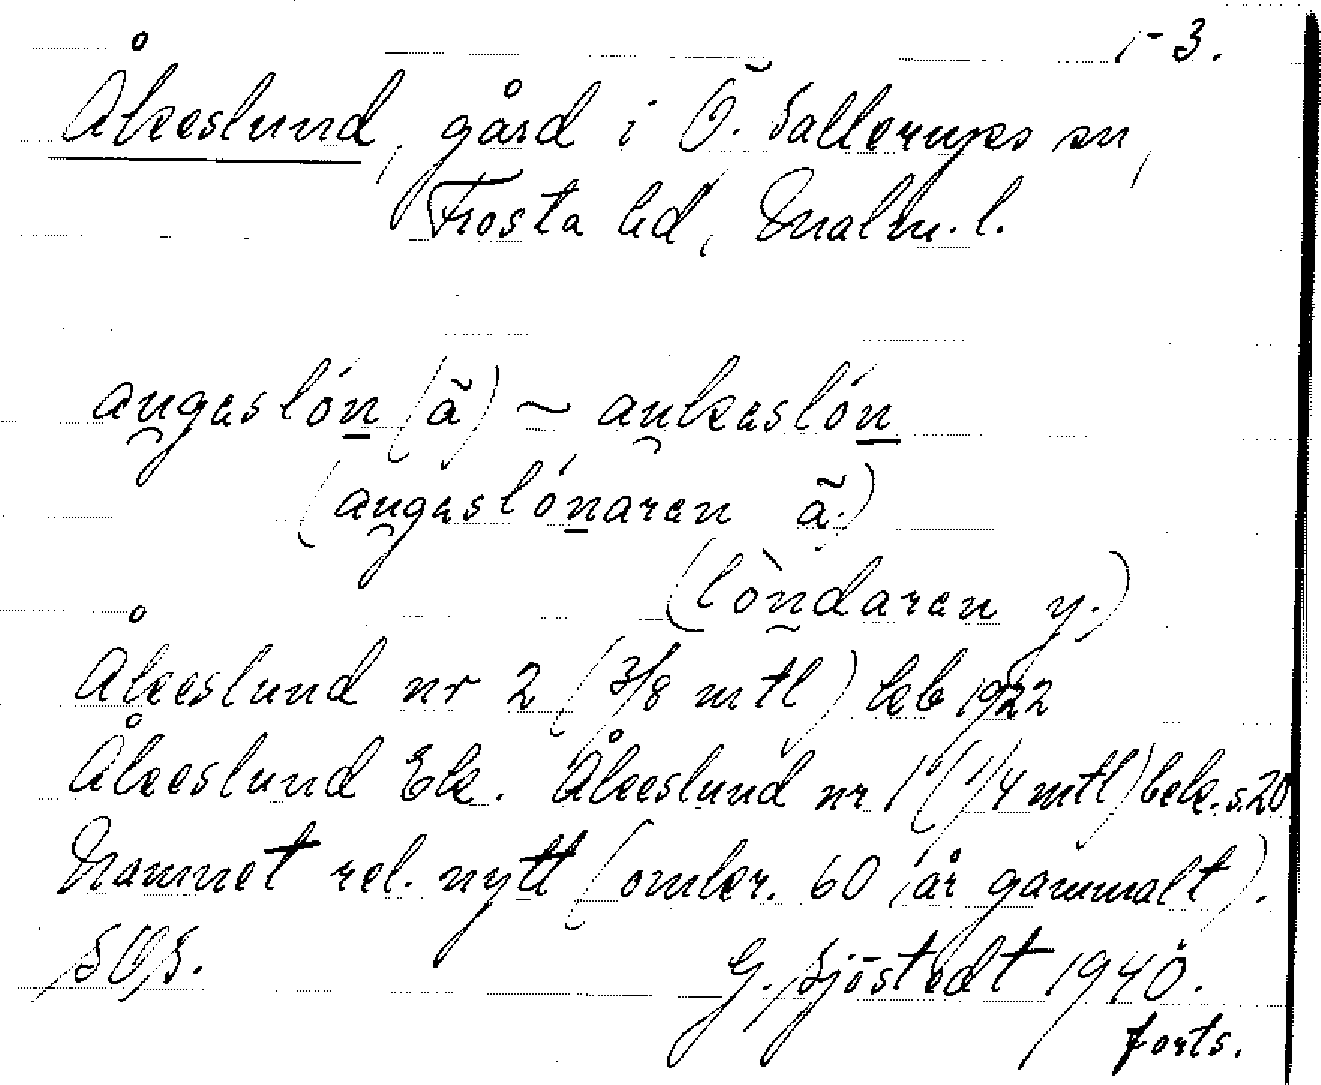 1-3.
Åkeslund, gård i Ö. Sallerups sn,
Frosta hd, Malm. l.
au̯gəslón (ã) ~ au̯kəslón
(au̯gəslónarən ã.)
(lòndarən y.)
Åkeslund nr 2 (3/8 mtl) kb 1922
Åkeslund Ek. Åkeslund nr 1 (1/4 mtl) bek. s. 20
Namnet rel. nytt (omkr. 60 år gammalt).
SOS. G. Sjöstedt 1940.
forts.